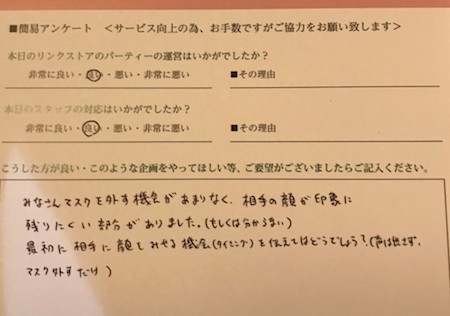 ■簡易アンケート　＜サービス向上の為、お手数ですがご協力をお願い致します＞
本日のリンクストアのパーティーの運営はいかがでしたか？
非常に良い・良い・悪い・非常に悪い　■その理由
本日のスタッフの対応はいかがでしたか？
非常に良い・良い・悪い・非常に悪い　■その理由
こうした方が良い・このような企画をやってほしい等、ご要望がございましたらご記入ください。
みなさんマスクを外す機会があまりなく、相手の顔が印象に
残りにくい部分がありました。(もしくは分からない)
最初に相手に顔をみせる機会(タイミング)を伝えてはどうでしょう？(声は出さず、
マスク外すだけ)